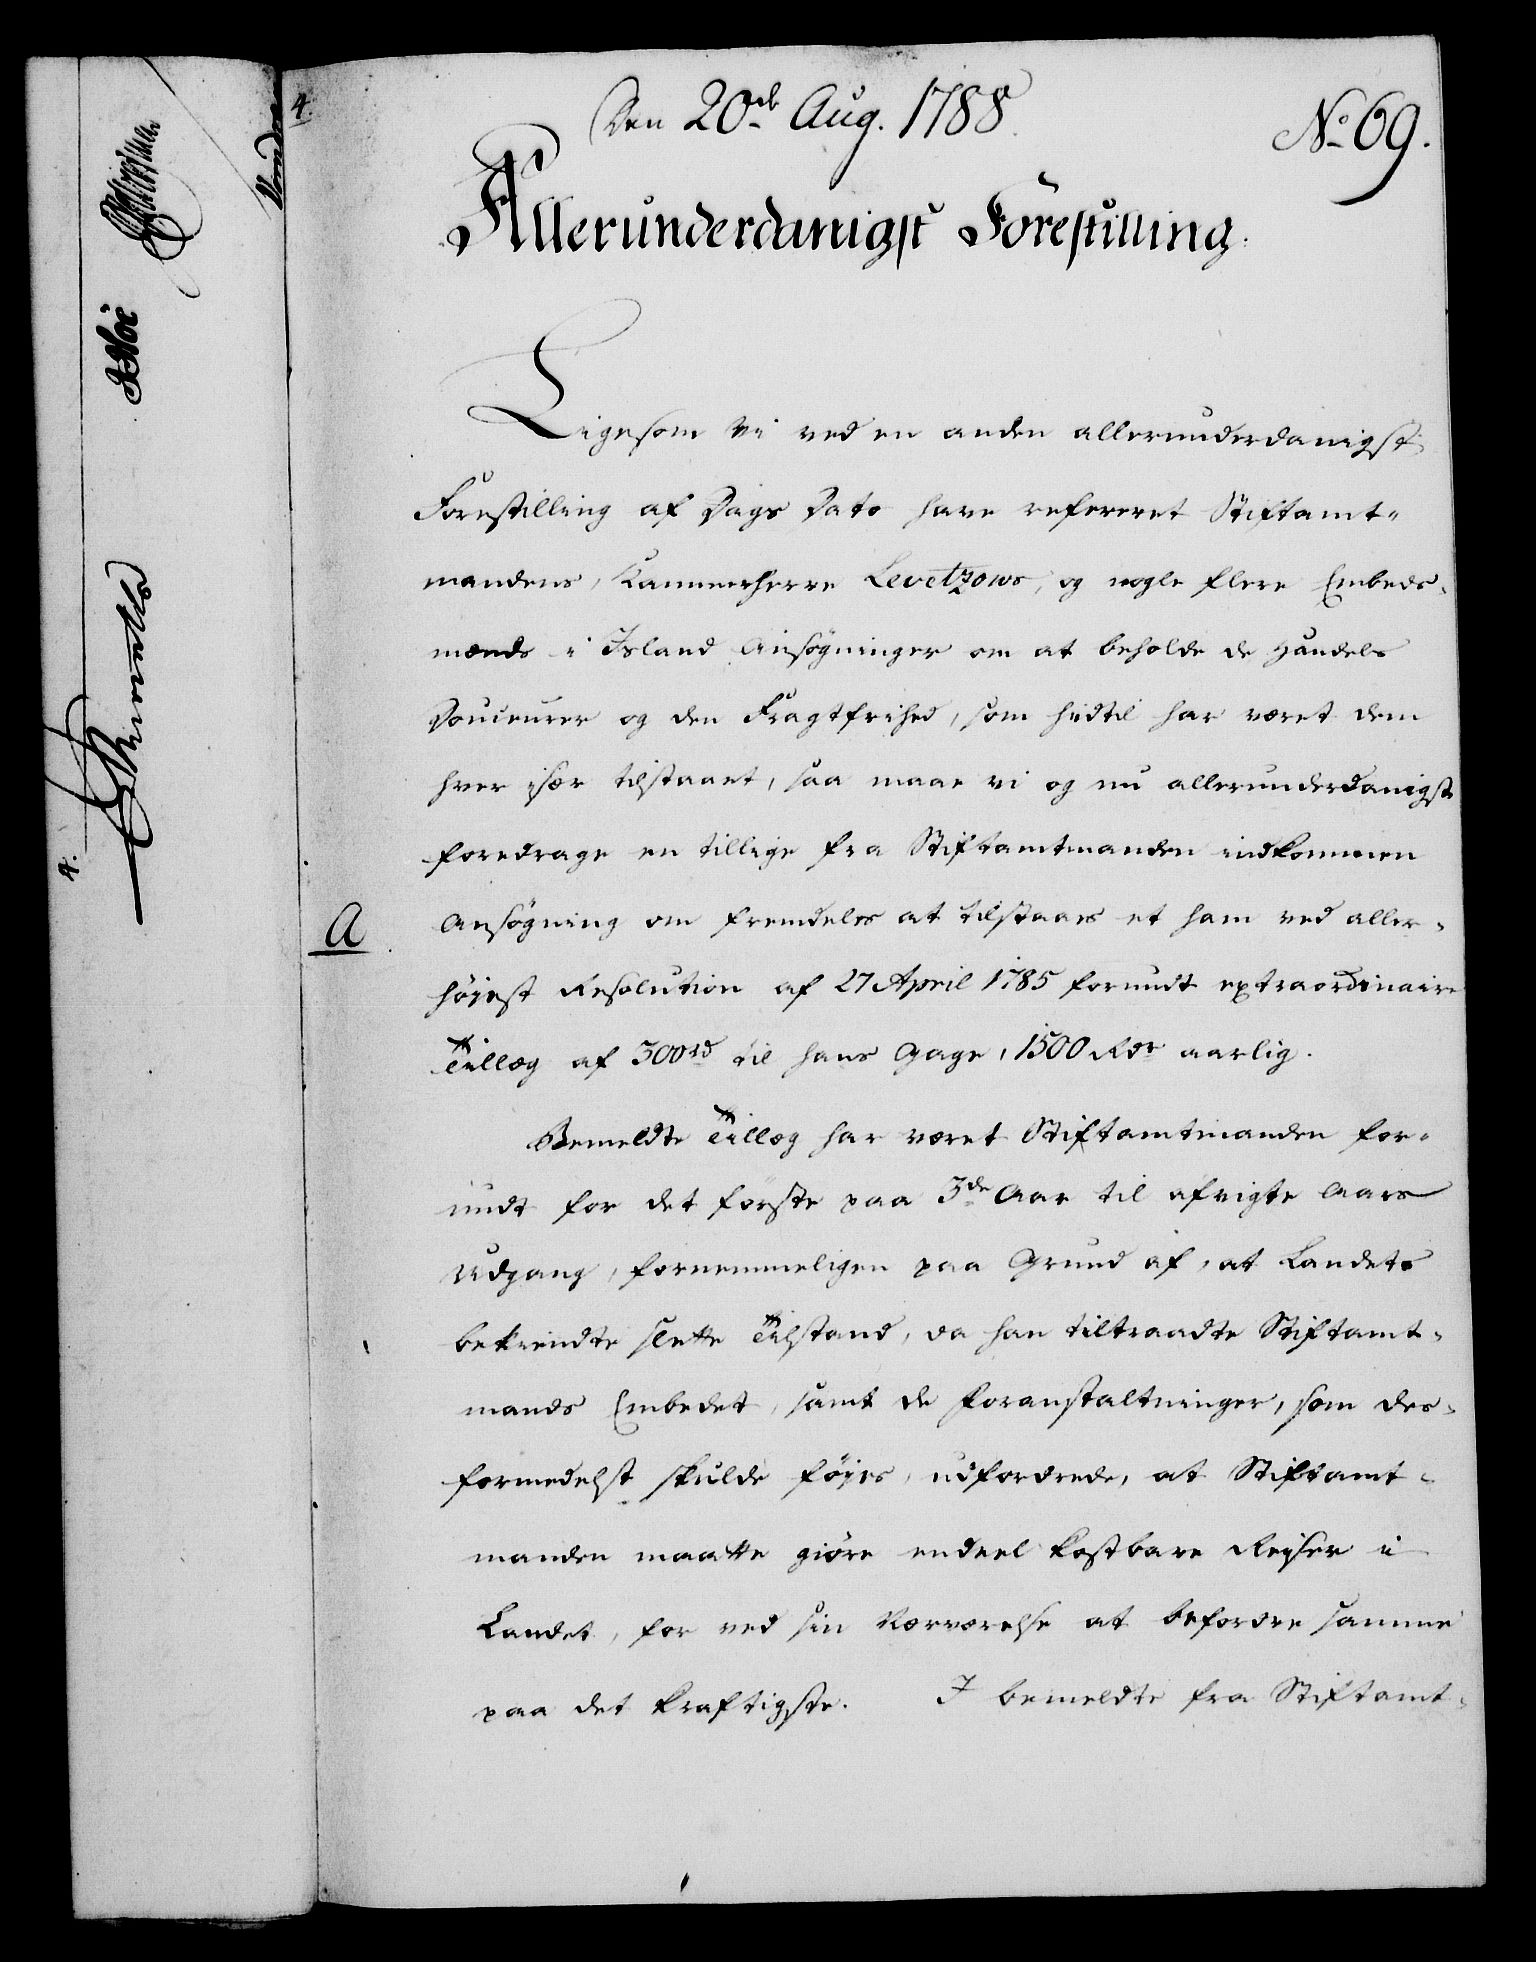 Den 20de Aug. 1788.
No 69.
Allerunderdanigst Forestilling.
Ligesom vi ved en anden allerunderdanigst
Forestilling af Dags Dato have refereret Stiftamt-
mandens, Kammerherre Levetzows, og nogle flere Embeds-
mænds i Island Ansøgninger om at beholde de Handels
Douceurer og den Fragtfrihed, som hidtil har været dem
hver især tilstaaet, saa maae vi og nu allerunderdanigst
foredrage en tillige fra Stiftamtmanden indkommen
A
Ansøgning om fremdeles at tilstaaes et ham ved aller-
højest Resolution af 27 April 1785 forundt extraordinaire
Tillæg af 300rd til hans Gage, 1500 Rdr aarlig.
Bemeldte Tillæg har været Stiftamtmanden for-
undt for det første paa 3de Aar til afvigte Aars
Udgang, fornemmeligen paa Grund af, at Landets
bekiendte slette Tilstand, da han tiltraadte Stiftamt-
mands Embedet, samt de Foranstaltninger, som des-
formedelst skulde føjes, udfordrede, at Stiftamt-
manden maatte giøre endeel kostbare Rejser i
Landet, for ved sin Nærværelse at befordre samme
paa det kraftigste. I bemeldte fra Stiftamt-
4.
4.